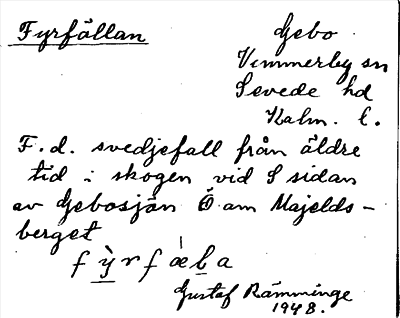 Fyrfällan
Gebo
Vimmerby sn
Sevede hd
Kalm. l.
F.d. svedjefall från äldre
tid i skogen vid S sidan
av Gebosjön Ö om Majelds-
berget
fỳ̲rfæ̀ḻa
Gustaf Rämminge
1948.